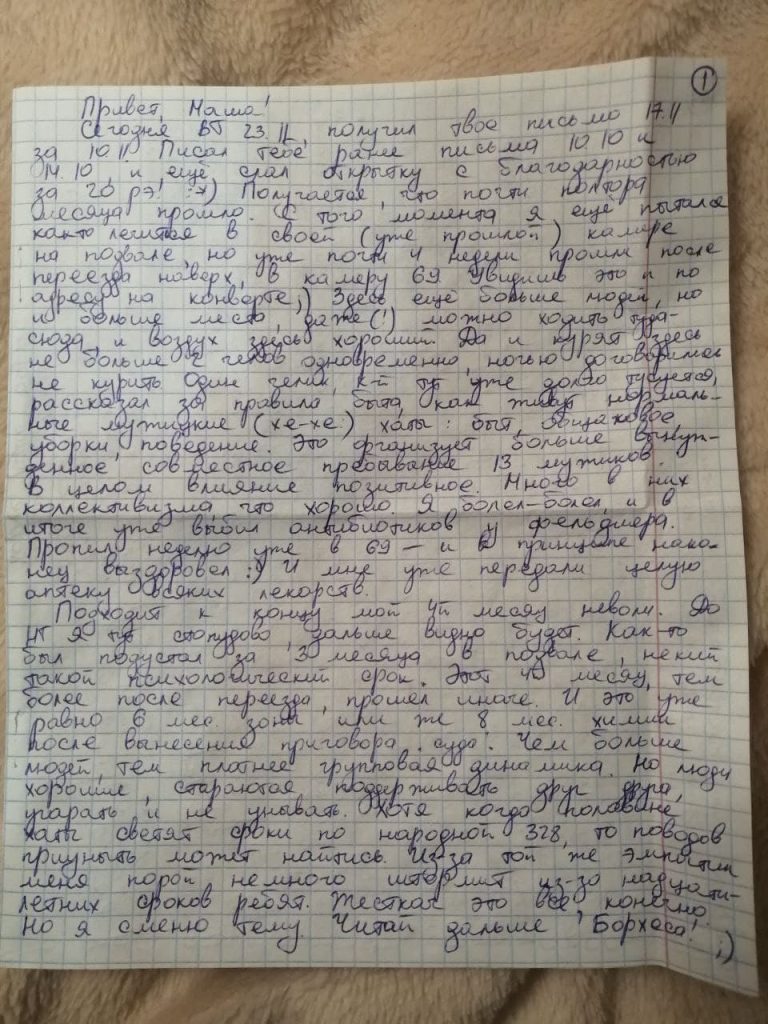 ①
Привет, Маша!
Сегодня ВТ 23.11, получил твое письмо 17.11
за 10.11 Писал тебе ранее письма 10.10 и
14.10, и ещё слал открытку с благодарностью
за 20 рэ! :*) Получается, что почти полтора
месяца прошло. С того момента я ещё пытался
как-то лечиться в своей (уже прошлой) камере
на подвале, но уже почти 4 недели прошли после
переезда наверх, в камеру 69 Увидишь это и по
адресу на конверте;) Здесь ещё больше людей, но
и больше места, даже(!) можно ходить туда-
сюда, и воздух здесь хороший. Да и курят здесь
не больше 2 челов одновременно, ночью договорились
не курить Один челик, к-й тут уже долго тусуется,
рассказал за правила быта, как живут нормаль-
ные мужицкие (хе-хе) хаты: быт, общаковое,
уборки, поведение. Это организует больше вынуж-
денное совместное пребывание 13 мужиков.
В целом влияние позитивное. Много в них
коллективизма, что хорошо. Я болел-болел, и в
итоге уже выбил антибиотиков у фельдшера.
Пропил неделю уже в 69 – и в принципе нако-
нец выздоровел :) И мне уже передали целую
аптеку всяких лекарств.
Подходит к концу мой 4й месяц неволи. До
НГ я тут стопудово, дальше видно будет. Как-то
был подустал за 3 месяца в подвале, некий
такой психологический срок. Этот 4й месяц, тем
более после переезда, прошел иначе. И это уже
равно 6 мес. зоны или же 8 мес. химии
после вынесения приговора суда. Чем больше
людей, тем плотнее групповая динамика. Но люди
хорошие, стараются поддерживать друг друга,
угарать и не унывать. Хотя когда половине
хаты светят сроки по народной 328, то поводов
приуныть может найтись. Из-за той же эмпатии
меня порой немного штормит из-за надцати-
летних сроков ребят. Жесткач это всё конечно.
Но я сменю тему Читай дальше, Борхеса! ;)